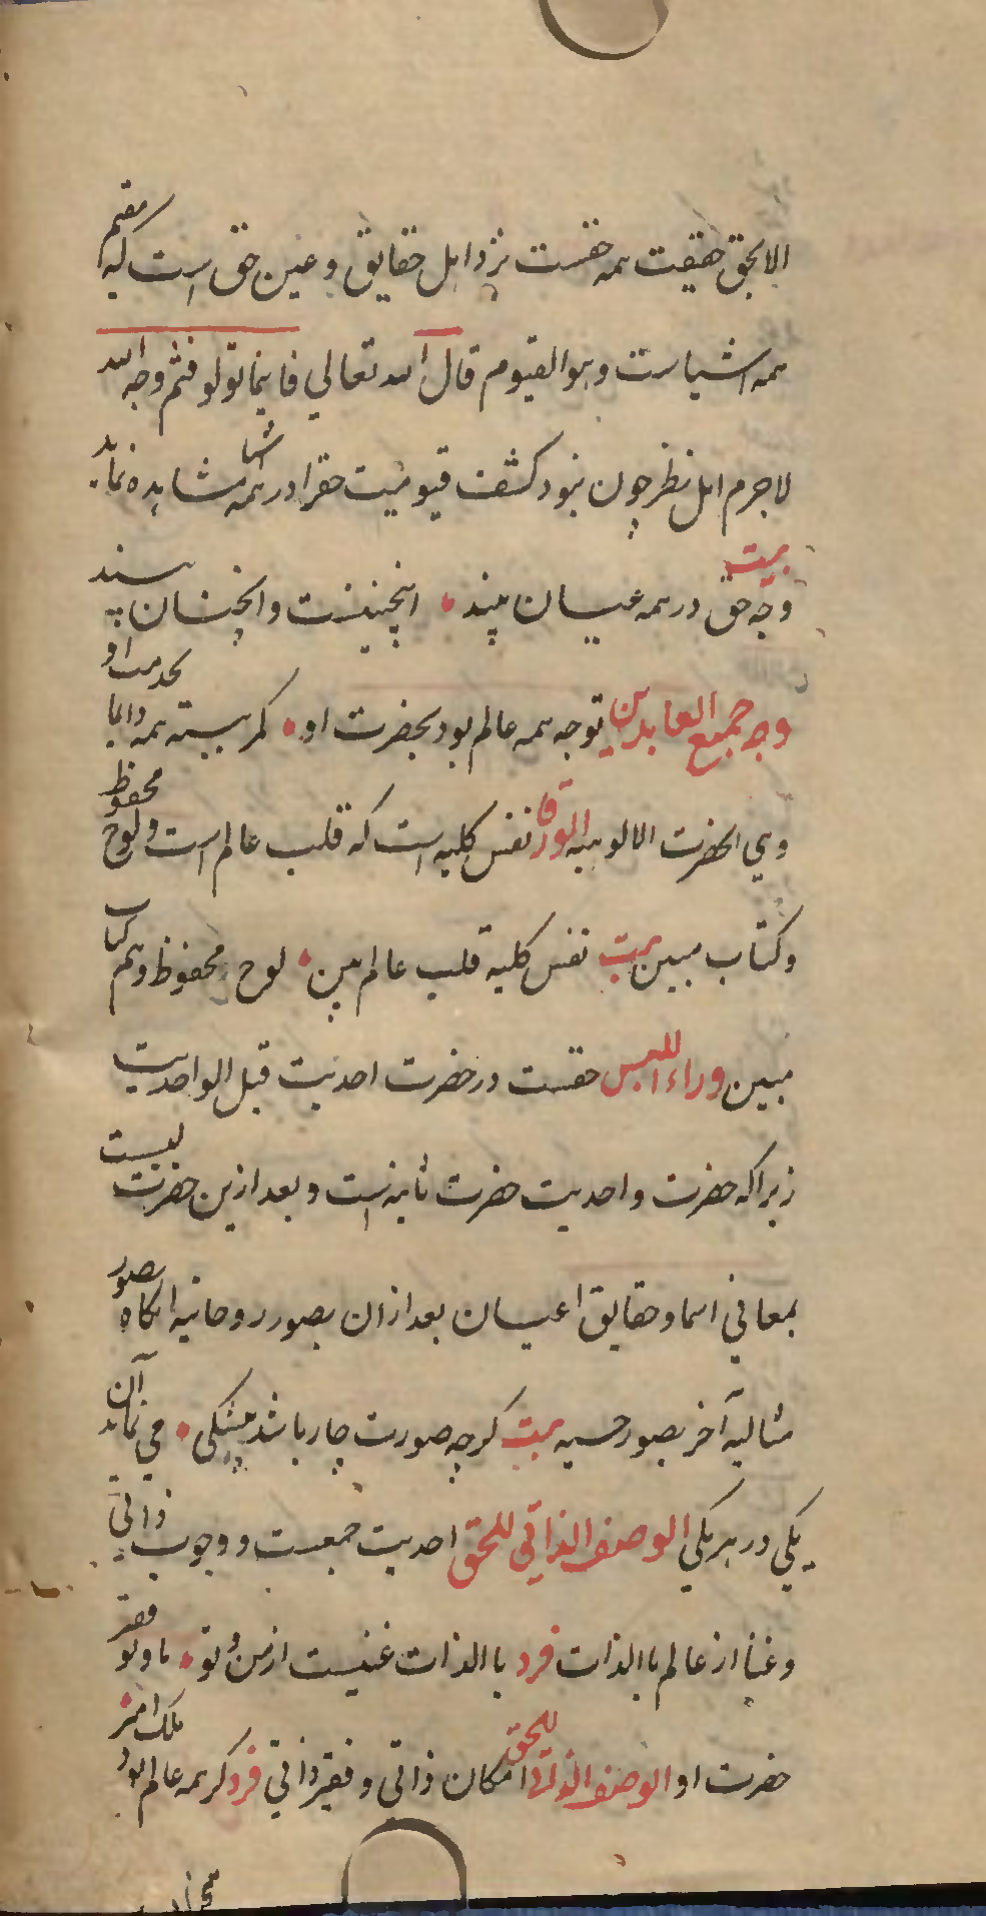 الا بحق حقیقت همه حقست نزد اهل حقایق و عین حق است که مقیم
همه اشیاست و هو القیوم قال الله تعالی فاینما تولو فثم وجه الله
لاجرم اهل نظر چون نبود کشف قیومیت حقرا در همه اشیا مشاهده نماید
بیت
وجه حق در همه عیان بیند اینچنینست و آنچنان بیند
وجه جمیع العابدین توجه همه عالم بود بحضرت او کمر ببسته همه دائما بخدمت او
وهی الحضرت الالوهیه الورقا نفس کلیه است که قلب عالم است و لوح محفوظ
و کتاب مبین بیت نفس کلیه قلب عالم بین لوح محفوظ و هم کتاب
مبین وراء اللبس حقست در حضرت احدیت قبل الواحدیت
زیرا که حضرت واحدیت حضرت ثانیه است و بعد ازین حضرت لبیست
بمعانی اسما و حقایق اعیان بعد از آن بصور روحانیه انکاه بصور
مثالیه آخر بصور حسیه بیت کرچه صورت چار باشد بیشکی می نماید آن
یکی در هر یکی الوصف الذاتی للحق احدیت جمعست و وجوب ذاتی
و غنا از عالم باالذات فرد باالذات غنیست از من و تو ما و تو فقر
حضرت او الوصف الذاتی للخلق امکان ذاتی و فقر ذاتی فرد کر همه عالم بود ملک